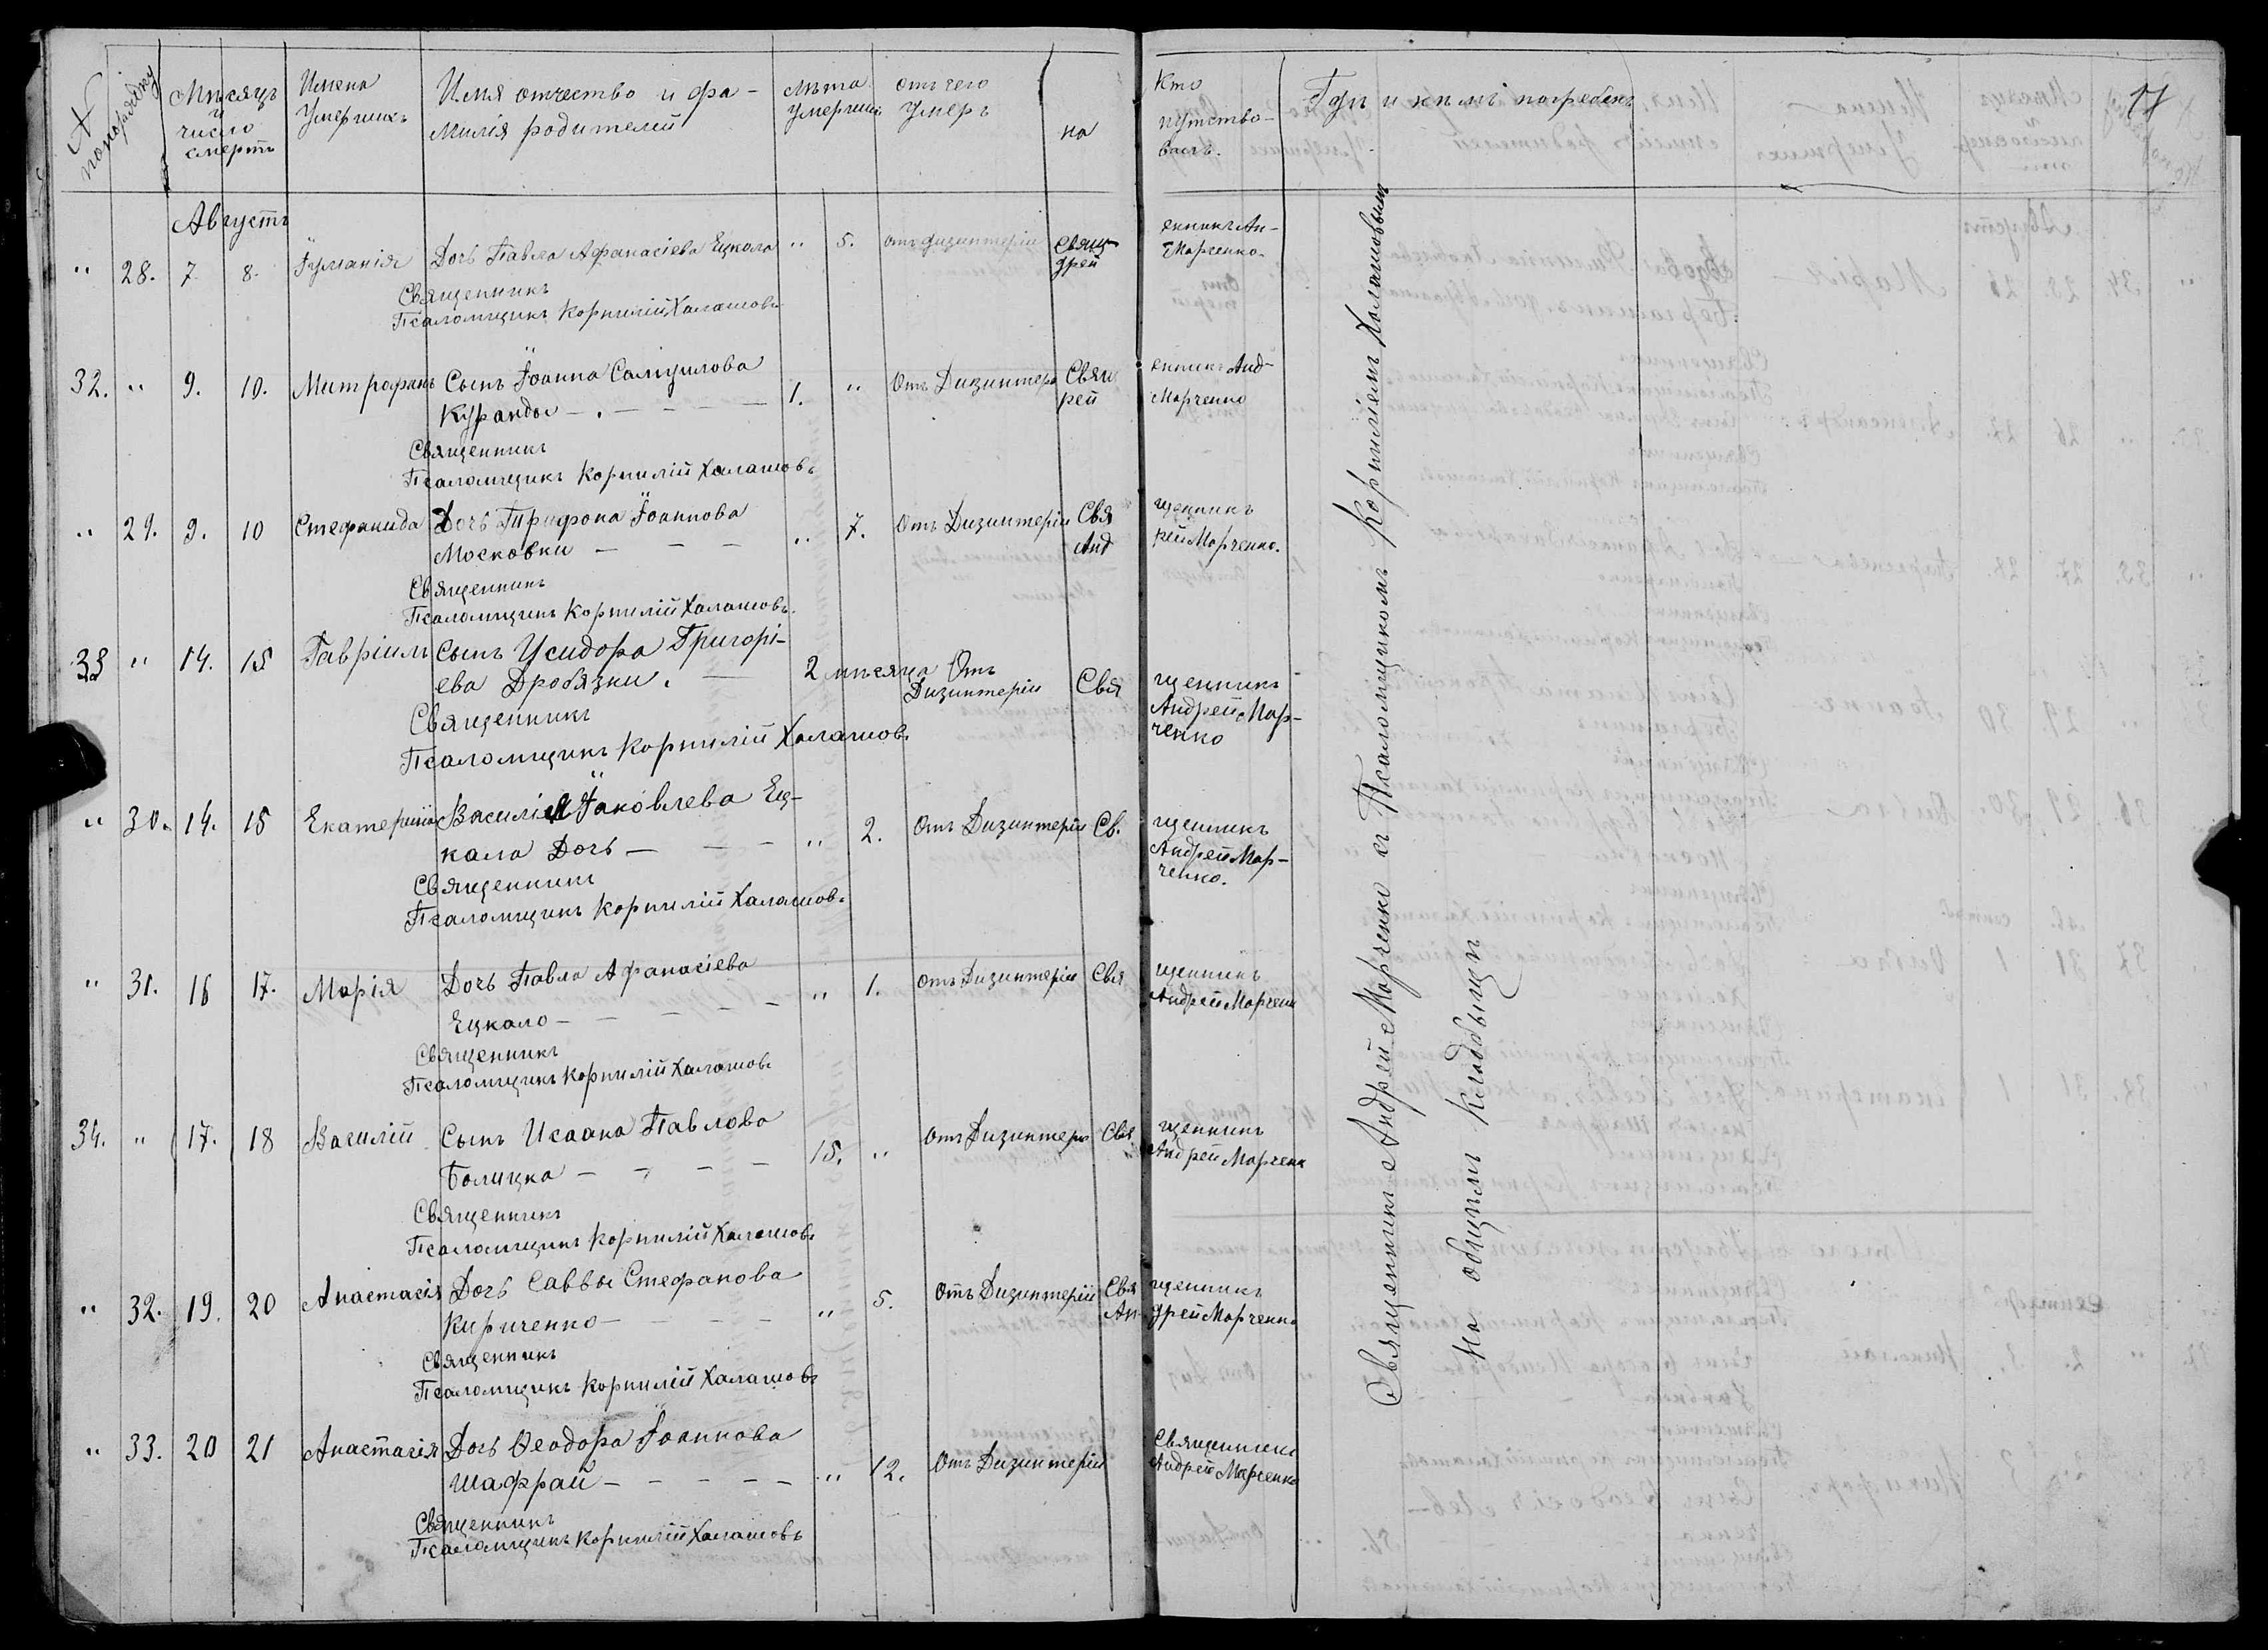 № по порядку
Мѣсяцъ и число смерти
Имена Умершихъ
Имя отчество и фамилія родителей
Лѣта умершихъ
отъ чего умеръ
на
Кто путствовалъ.
Гдѣ и кѣмъ погребенъ
Августъ
" 28. 7 8. Дочь Павла Афанасіева Ецкало " 5. отъ дизинтеріи Священникъ Ан-
дрей Марченко.
Священникъ
Псаломщикъ Корнилій Халашовъ
32. " 9. 10. Митрофанъ Сынъ Іоанна Самуилова
Куранда 1. " Отъ Дизинтеріи Священникъ Анд-
рей Марченко
Священникъ
Псаломщикъ Корнилій Халашовъ
" 29. 9. 10 Стефанида Дочь Трифона Іоаннова
Московки " 7. Отъ Дизинтеріи Священникъ
Андрей Марченко.
Священникъ
Псаломщикъ Корнилій Халашовъ
33 " 14. 15 Гавріилъ Сынъ Исидора Григорі-
ева Дробязки. 2 мѣсяца Отъ
Дизинтеріи Священникъ
Андрей Мар-
ченко
Священникъ
Псаломщикъ Корнилій Халашовъ
" 30. 14. 15 Екатерина Василія Іаковлева Ец-
кала Дочь " 2. Отъ Дизинтеріи Св. щенникъ
Андрей Мар-
ченко.
Священникъ
Псаломщикъ Корнилій Халашовъ
" 31. 16 17. Марія Дочь Павла Афанасіева
Ецкало " 1. Отъ Дизинтеріи Священникъ
Андрей Марченк
Священникъ
Псаломщикъ Корнилій Халашовъ
34. " 17. 18 Василій Сынъ Исаака Павлова
Болицка 15. " Отъ Дизинтеріи Священникъ
Андрей Марченк
Священникъ
Псаломщикъ Корнилій Халашовъ
" 32. 19. 20 Анастасія Дочь Саввы Стефанова
Кириченко " 5. Отъ Дизинтеріи Священникъ
Андрей Марченко
Священникъ
Псаломщикъ Корнилій Халашовъ
" 33. 20 21 Анастасія Дочь Ѳеодора Іоаннова
Шафрай " 12. Отъ Дизинтеріи Священникъ
Андрей Марченко
Священникъ
Псаломщикъ Корнилій Халашовъ
Священникъ Андрей Марченко съ Псаломщикомъ Корниліемъ Халашовымъ
на общемъ кладбищѣ